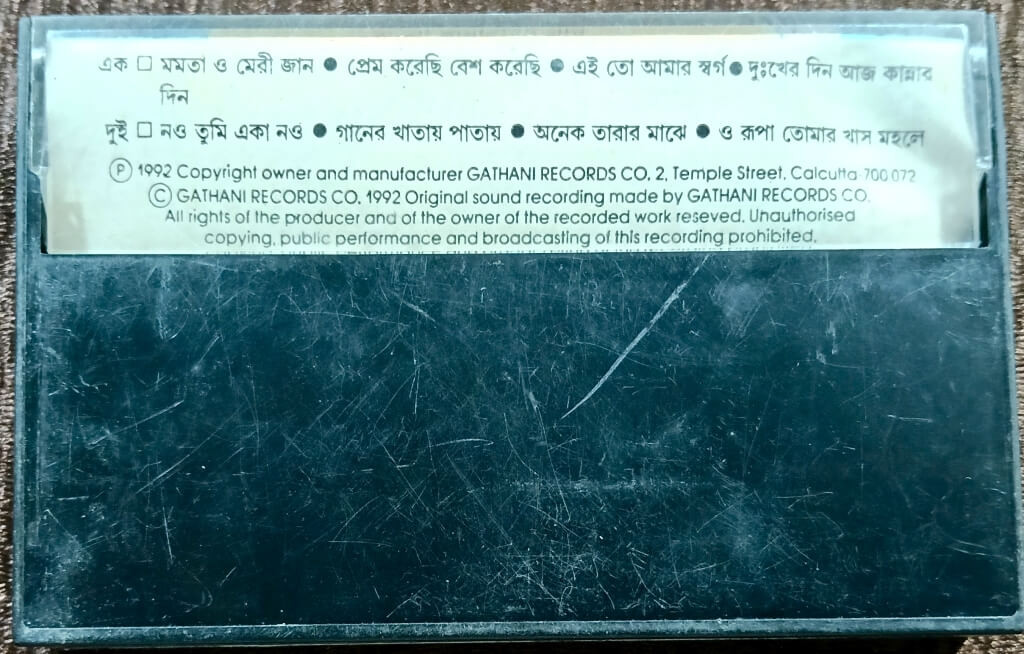 এক □ মমতা ও মেরী জান ● প্রেম করেছি বেশ করেছি ● এই তো আমার স্বর্গ ● দুঃখের দিন আজ কান্নার
দিন
দুই □ নও তুমি একা নও ● গানের খাতায় পাতায় ● অনেক তারার মাঝে ● ও রূপা তোমার খাস মহলে
Ⓟ 1992 Copyright owner and manufacturer GATHANI RECORDS CO. 2, Temple Street, Calcutta-700 072
© GATHANI RECORDS CO. 1992 Original sound recording made by GATHANI RECORDS CO.
All rights of the producer and of the owner of the recorded work reseved. Unauthorised
copying, public performance and broadcasting of this recording prohibited.